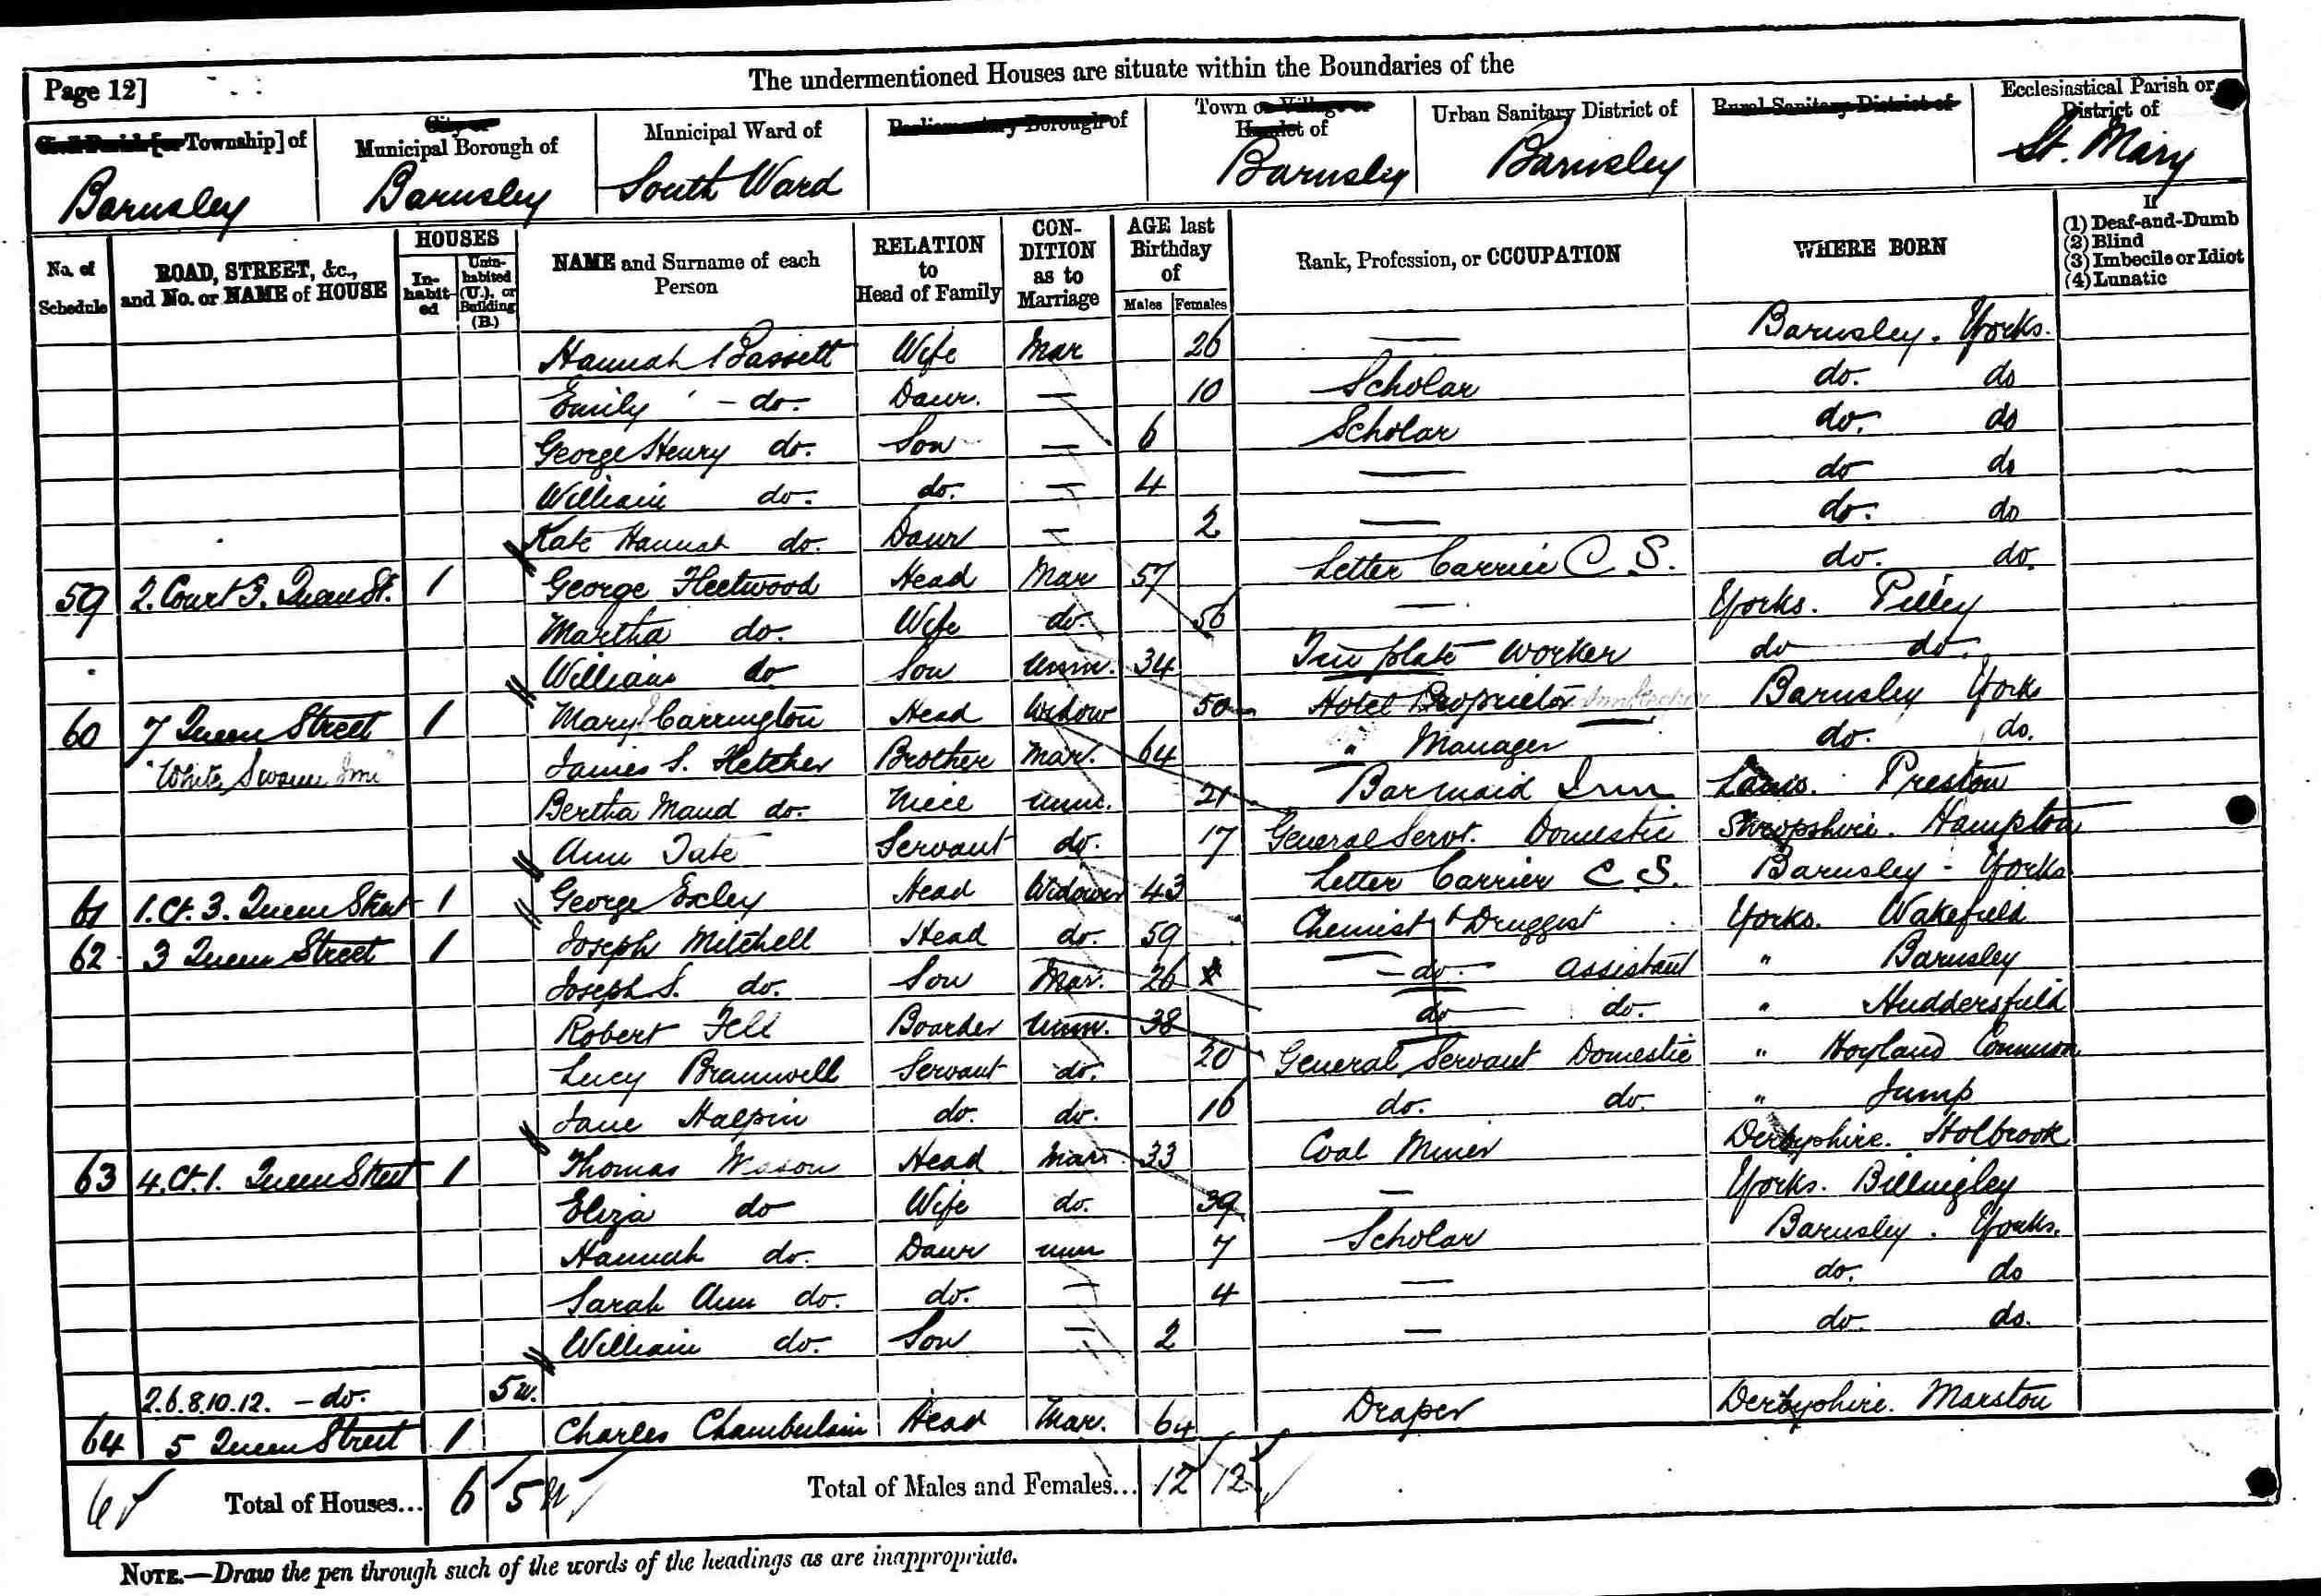 Page 12]
The undermentioned Houses are situate within the Boundaries of the
Civil Parish [or Township] of
City or Municipal Borough of
Municipal Ward of
Parliamentary Borough of
Town or Village or Hamlet of
Urban Sanitary District of
Rural Sanitary District of
Ecclesiastical Parish or District of
Barnsley Barnsley South Ward Barnsley Barnsley St. Mary
No. of Schedule
ROAD, STREET, &c., and No. or NAME of HOUSE
HOUSES
In-habit-ed
Unin-habited (U.), or Building (B.)
NAME and Surname of each Person
RELATION to Head of Family
CON-DITION as to Marriage
AGE last Birthday of
Males Females
Rank, Profession, or OCCUPATION
WHERE BORN
If
(1) Deaf-and-Dumb
(2) Blind
(3) Imbecile or Idiot
(4) Lunatic
Hannah Bassett Wife Mar 26 — Barnsley. Yorks.
Emily - do. Daur. — 10 Scholar do. do
George Henry do. Son — 6 Scholar do. do
William do. do. — 4 — do do
Kate Hannah do. Daur — 2 — do. do
59 2. Court 3. Queen St. 1 George Fleetwood Head Mar 57 Letter Carrier C. S. do. do.
Martha do. Wife do. 56 — Yorks. Pilley
William do Son Unm. 34 Tin plate worker do do.
60 7 Queen Street 1 Mary Carrington Head Widow 50 Hotel Proprietor Barnsley Yorks
"White Swan Inn" James S. Fletcher Brother Mar. 64 " Manager do. do.
Bertha Maud do. Niece Unm. 21 Barmaid Inn Lancs. Preston
Ann Tate Servant do. 17 General Servt. Domestic Shropshire. Hampton
61 1. Ct. 3. Queen Street 1 George Exley Head Widower 43 Letter Carrier C. S. Barnsley - Yorks
62 3 Queen Street 1 Joseph Mitchell Head do. 59 Chemist & Druggist Yorks. Wakefield
Joseph S. do. Son Mar. 26 - do - assistant " Barnsley
Robert Fell Boarder Unm. 38 do do. " Huddersfield
Lucy Bramwell Servant do. 20 General Servant Domestic " Hoyland Common
Jane Halpin do. do. 16 do. do. " Jump
63 4. Ct. 1. Queen Street 1 Thomas Head Mar. 33 Coal Miner Derbyshire. Holbrook
Eliza do Wife do. 39 — Yorks. Billingley
Hannah do. Daur unm 7 Scholar Barnsley. Yorks.
Sarah Ann do. do. — 4 — do. do
William do. Son — 2 — do. do.
2.6.8.10.12. - do. 5 u.
64 5 Queen Street 1 Charles Chamberlain Head Mar. 64 Draper Derbyshire. Marston
6 Total of Houses... 6 5 u Total of Males and Females... 12 12
NOTE.—Draw the pen through such of the words of the headings as are inappropriate.